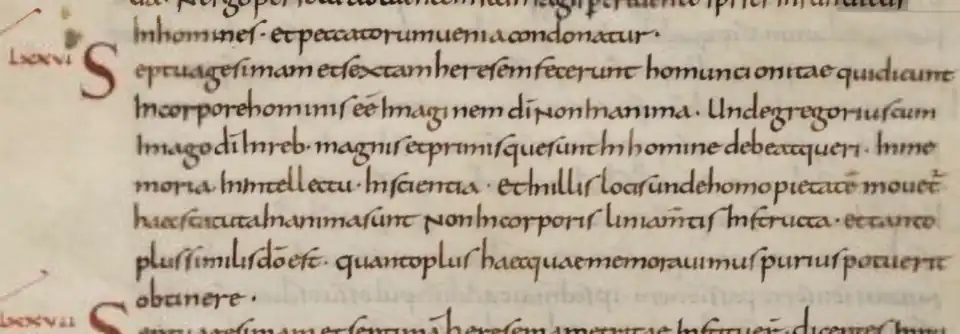 In homines · et peccatorum uenia condonatur ·
lxxvi Septuagesimam et sextam heresem fecerunt homuncionitae qui dicunt
In corpore hominis eē Imaginem dī Non In anima · Unde gregorius cum
Imago dī In reb · magnis et primis que sunt In homine debeat queri · In me
moria In Intellectu · In scientia · et In illis locis unde homo pietatē mouet
haec statuta In anima sunt Non In corporis liniam̄tis Instructa · et tanto
plus similis dō est · quanto plus haec quae memorauimus purius potuerit
obtinere ·
lxxvii Septuagesimam et septimā heresem